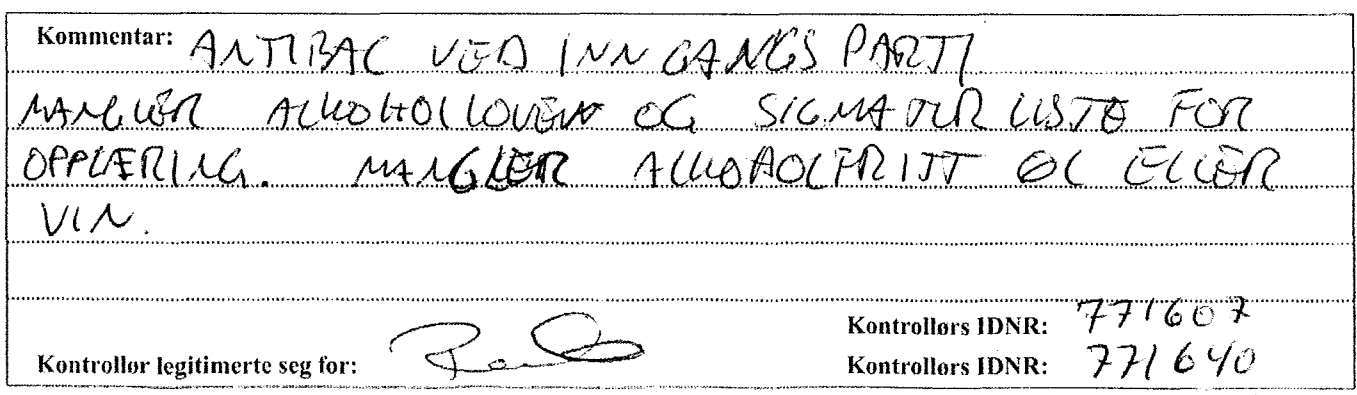 Kommentar: ANTIBAC VED INNGANGSPARTI
MANGLER ALKOHOLLOVEN OG SIGNATUR LISTE FOR
OPPLÆRING. MANGLER ALKOHOLFRITT ØL ELLER
VIN.
Kontrollørs IDNR: 771607
Kontrollør legitimerte seg for: Kontrollørs IDNR: 771640